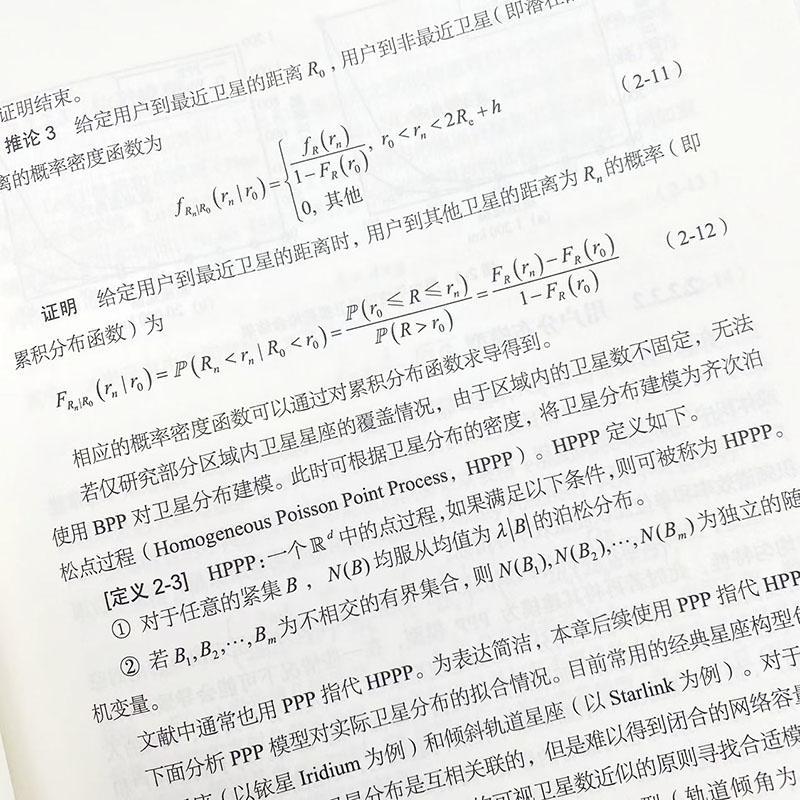 证明结束。
推论 3 给定用户到最近卫星的距离 R₀，用户到非最近卫星（即潜在
离的概率密度函数为
f_{Rₙ|R₀}(rₙ|r₀)={ f_R(rₙ)/(1−F_R(r₀)), r₀<rₙ<2Rₑ+h (2-11)
0, 其他
证明 给定用户到最近卫星的距离时，用户到其他卫星的距离为 Rₙ 的概率（即
累积分布函数）为
F_{Rₙ|R₀}(rₙ|r₀)=ℙ(Rₙ<rₙ|R₀<r₀)=ℙ(r₀≤R≤rₙ)/ℙ(R>r₀)=(F_R(rₙ)−F_R(r₀))/(1−F_R(r₀)) (2-12)
相应的概率密度函数可以通过对累积分布函数求导得到。
若仅研究部分区域内卫星星座的覆盖情况，由于区域内的卫星数不固定，无法
使用 BPP 对卫星分布建模。此时可根据卫星分布的密度，将卫星分布建模为齐次泊
松点过程（Homogeneous Poisson Point Process，HPPP）。HPPP 定义如下。
[定义 2-3] HPPP：一个 ℝᵈ 中的点过程，如果满足以下条件，则可被称为 HPPP。
① 对于任意的紧集 B， N(B) 均服从均值为 λ|B| 的泊松分布。
② 若 B₁,B₂,⋯,Bₘ 为不相交的有界集合，则 N(B₁),N(B₂),⋯,N(Bₘ) 为独立的随
机变量。
文献中通常也用 PPP 指代 HPPP。为表达简洁，本章后续使用 PPP 指代 HPP
下面分析 PPP 模型对实际卫星分布的拟合情况。目前常用的经典星座构型包
（以铱星 Iridium 为例）和倾斜轨道星座（以 Starlink 为例）。对于
星分布是互相关联的，但是难以得到闭合的网络容量
可视卫星数近似的原则寻找合适模
（轨道倾角为